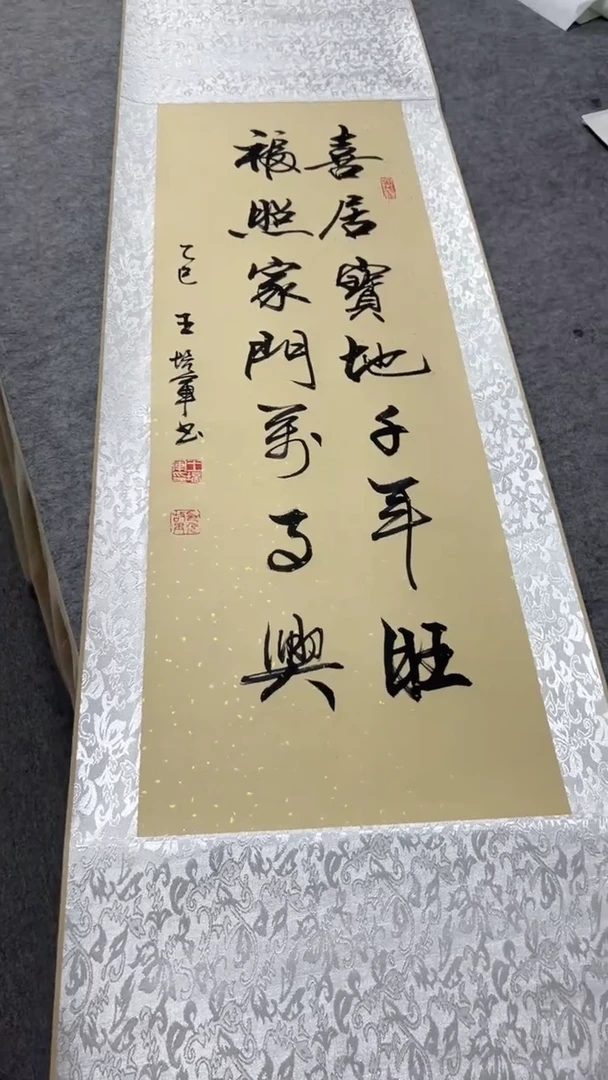 喜居寶地千年旺
福照家門萬事興
乙巳 王培軍書